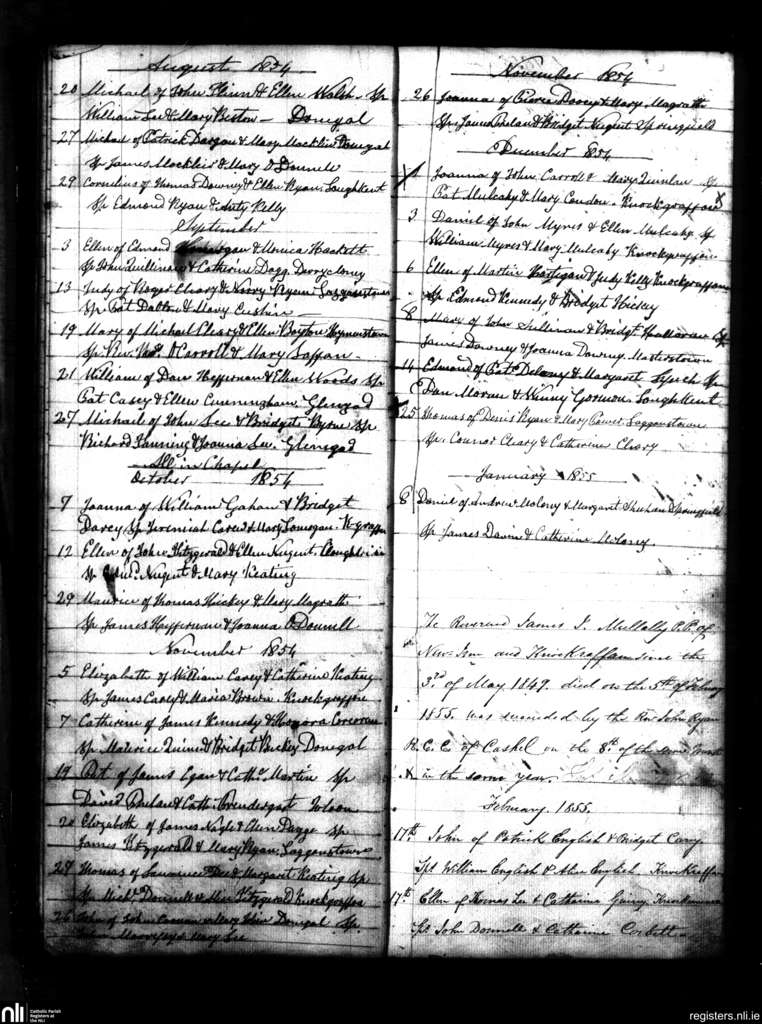 August 1854
20 Michael of John Flinn & Ellen Walsh Sp
William Lee & Mary Beston — Donegal
27 Michael of Patrick Dargan & Mary Mocklir Donegal
Sp James Mocklir & Mary O Donnell
29 Cornelius of Thomas Downey & Ellen Ryan, Loughkent
Sp Edmond Ryan & Kelly
September
3 Ellen of Edmond & Monica Hackett
Sp John Quillinan & Catherine Dagg.
13 Judy of Roger Cleary & Ryan
Sp Pat Dalton & Mary
19 Mary of Michael Cleary & Ellen Boyton
Sp Rev. O'Carroll & Mary
21 William of Dan Heffernan & Ellen Woods Sp
Pat Casey & Ellen Cunningham. Glengad
27 Michael of John Lee & Bridget Byrne Sp
Richard Fanning & Joanna Lee. Glenegad
All in Chapel
October 1854
7 Joanna of William Gahan & Bridget
Darcy Sp Jeremiah & Mary Lonergan.
12 Ellen of John Fitzgerald & Ellen Nugent.
Sp Nugent & Mary Keating
29 Maurice of Thomas Hickey & Mary Magrath
Sp James Heffernan & Joanna O'Donnell
November 1854
5 Elizabeth of William Carey & Catherine Keating
Sp James Carey & Maria Brown. Knockgraffon
7 Catherine of James Kennedy & Honora Corcoran
Sp Maurice Quinn & Bridget Donegal
19 Pat of James Egan & Cath. Martin Sp
David Phelan & Cath. Prendergast
20 Elizabeth of James Nagle & Dagge Sp
James Fitzgerald & Mary Ryan,
28 Thomas of Laurence & Margaret Keating Sp
Sp Donnell & Fitzgerald Knockgraffon
26 John of John & Mary Donegal Sp.
John & Mary Lee
November 1854
26 Joanna of Pierce & Mary Magrath
Sp James Phelan & Bridget Nugent Springfield
December 1854
Joanna of John Carroll & Mary Quinlan Sp
Pat Mulcahy & Mary Condon. Knockgraffon X
3 Daniel of John Myres & Ellen Mulcahy Sp
William Myres & Mary Mulcahy Knockgraffon
6 Ellen of Martin & Judy Kelly Knockgraffon
Sp Edmond Kennedy & Bridget Hickey
8 Mary of John Sullivan & Bridget Sp
James Downey & Joanna Downey. Masterstown
14 Edmond of Pat. Delany & Margaret Lynch Sp
Dan Moran & Winny Gorman. Loughkent
25 Thomas of Denis Ryan & Mary Power
Sp. Connor Cleary & Catherine Cleary
January 1855
8 Daniel of Andrew Molony & Margaret Springfield
Sp James Davin & Catherine Molony
The Reverend James J. Mullally P.P. of
New Inn and Knockraffan since the
3rd of May 1849. died on the 5th of February
1855. was succeeded by the Rev John Ryan
R.C.C of Cashel on the 8th of the same month
in the same year.
February, 1855.
17th. John of Patrick English & Bridget Carey.
Sps William English & Alice English. Knockraffan
17th Ellen of Thomas Lee & Catharine
Sps John Donnell & Catharine Corbett
nli
Catholic Parish
Registers at
the NLI
registers.nli.ie